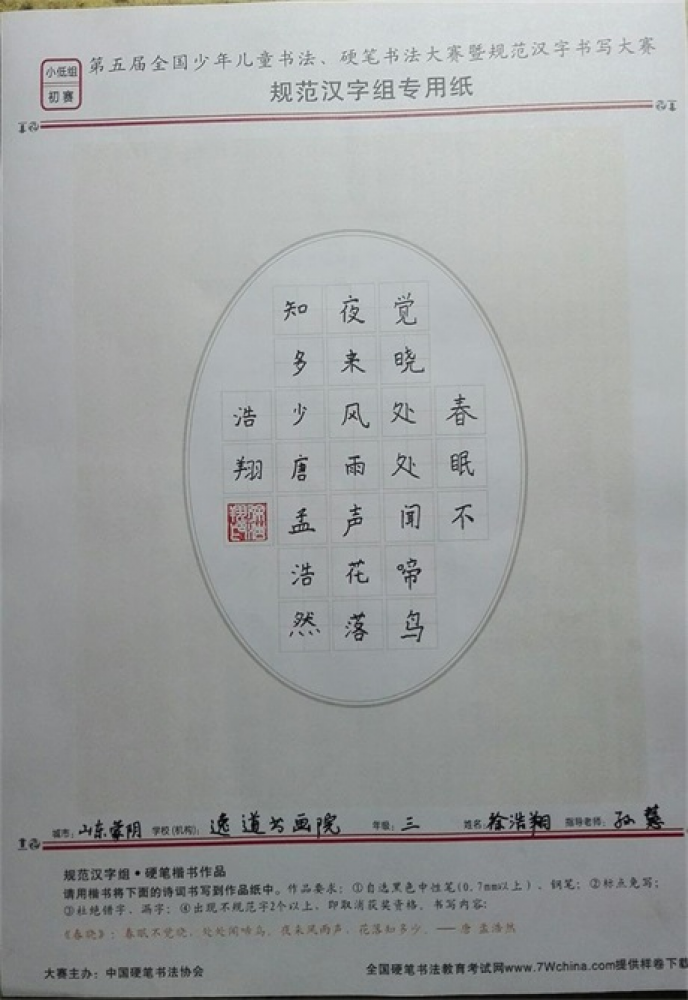 小低组
初赛
第五届全国少年儿童书法、硬笔书法大赛暨规范汉字书写大赛
规范汉字组专用纸
春眠不
觉晓处处闻啼鸟
夜来风雨声花落
知多少唐孟浩然
浩翔
城市：山东蒙阴 学校(机构)：逸道书画院 年级：三 姓名：徐浩翔 指导老师：孙慧
规范汉字组·硬笔楷书作品
请用楷书将下面的诗词书写到作品纸中。作品要求：①自选黑色中性笔(0.7mm以上)、钢笔；②标点免写；
③杜绝错字、漏字；④出现不规范字2个以上，即取消获奖资格。书写内容：
《春晓》：春眠不觉晓，处处闻啼鸟，夜来风雨声，花落知多少。——唐 孟浩然
大赛主办：中国硬笔书法协会
全国硬笔书法教育考试网www.7Wchina.com提供样卷下载